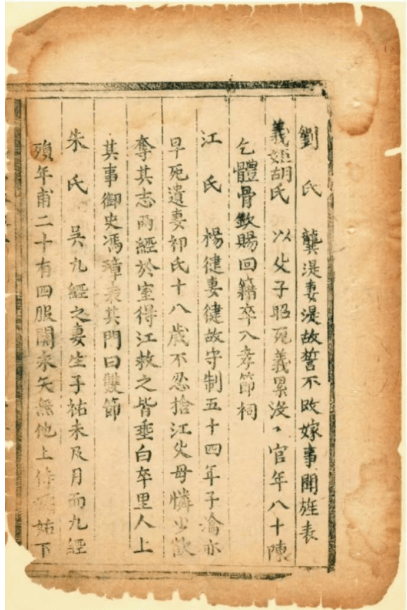 劉氏 龔湜妻湜故誓不改嫁事聞旌表
義姬胡氏 以父子昭死義累沒入官年八十陳
乞骸骨欽賜回籍卒入孝節祠
江氏 楊健妻健故守制五十四年子瀹亦
早死遺妻祁氏十八歲不忍捨江父母憐少欲
奪其志兩經於室得江救之皆垂白卒里人上
其事御史馮璋表其門曰雙節
朱氏 吳九經之妻生子祐未及月而九經
殞年甫二十有四服闋永矢無他上侍 姑下